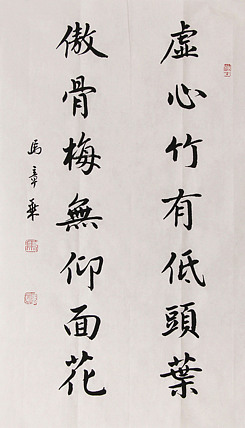 虛心竹有低頭葉
傲骨梅無仰面花
馬章乘